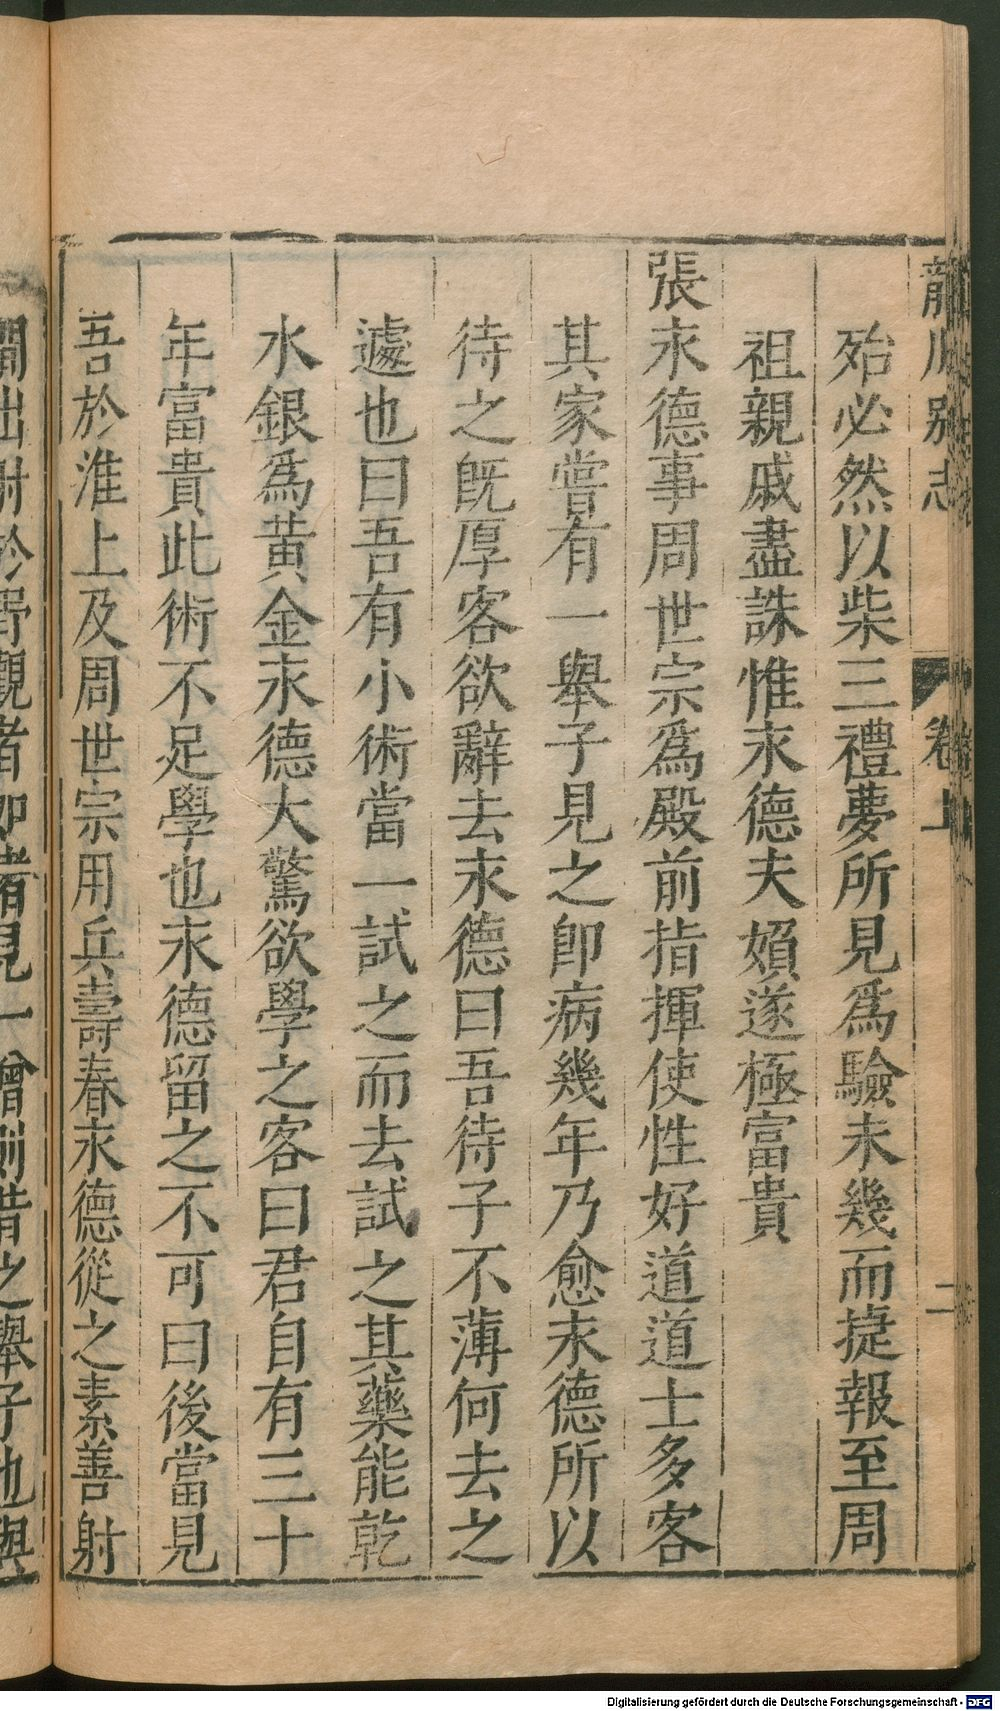 龍川别志
卷上
二
殆必然以柴三禮夢所見爲驗未幾而捷報至周
祖親戚盡誅惟永德夫婦遂極富貴
張永德事周世宗爲殿前指揮使性好道道士多客
其家嘗有一舉子見之卽病幾年乃愈永德所以
待之旣厚客欲辭去永德曰吾待子不薄何去之
遽也曰吾有小術當一試之而去試之其藥能乾
水銀爲黄金永德大驚欲學之客曰君自有三十
年富貴此術不足學也永德留之不可曰後當見
吾於淮上及周世宗用兵壽春永德從之素善射
間出射於野觀者如堵見一僧則昔之舉子也與
Digitalisierung gefördert durch die Deutsche Forschungsgemeinschaft - DFG